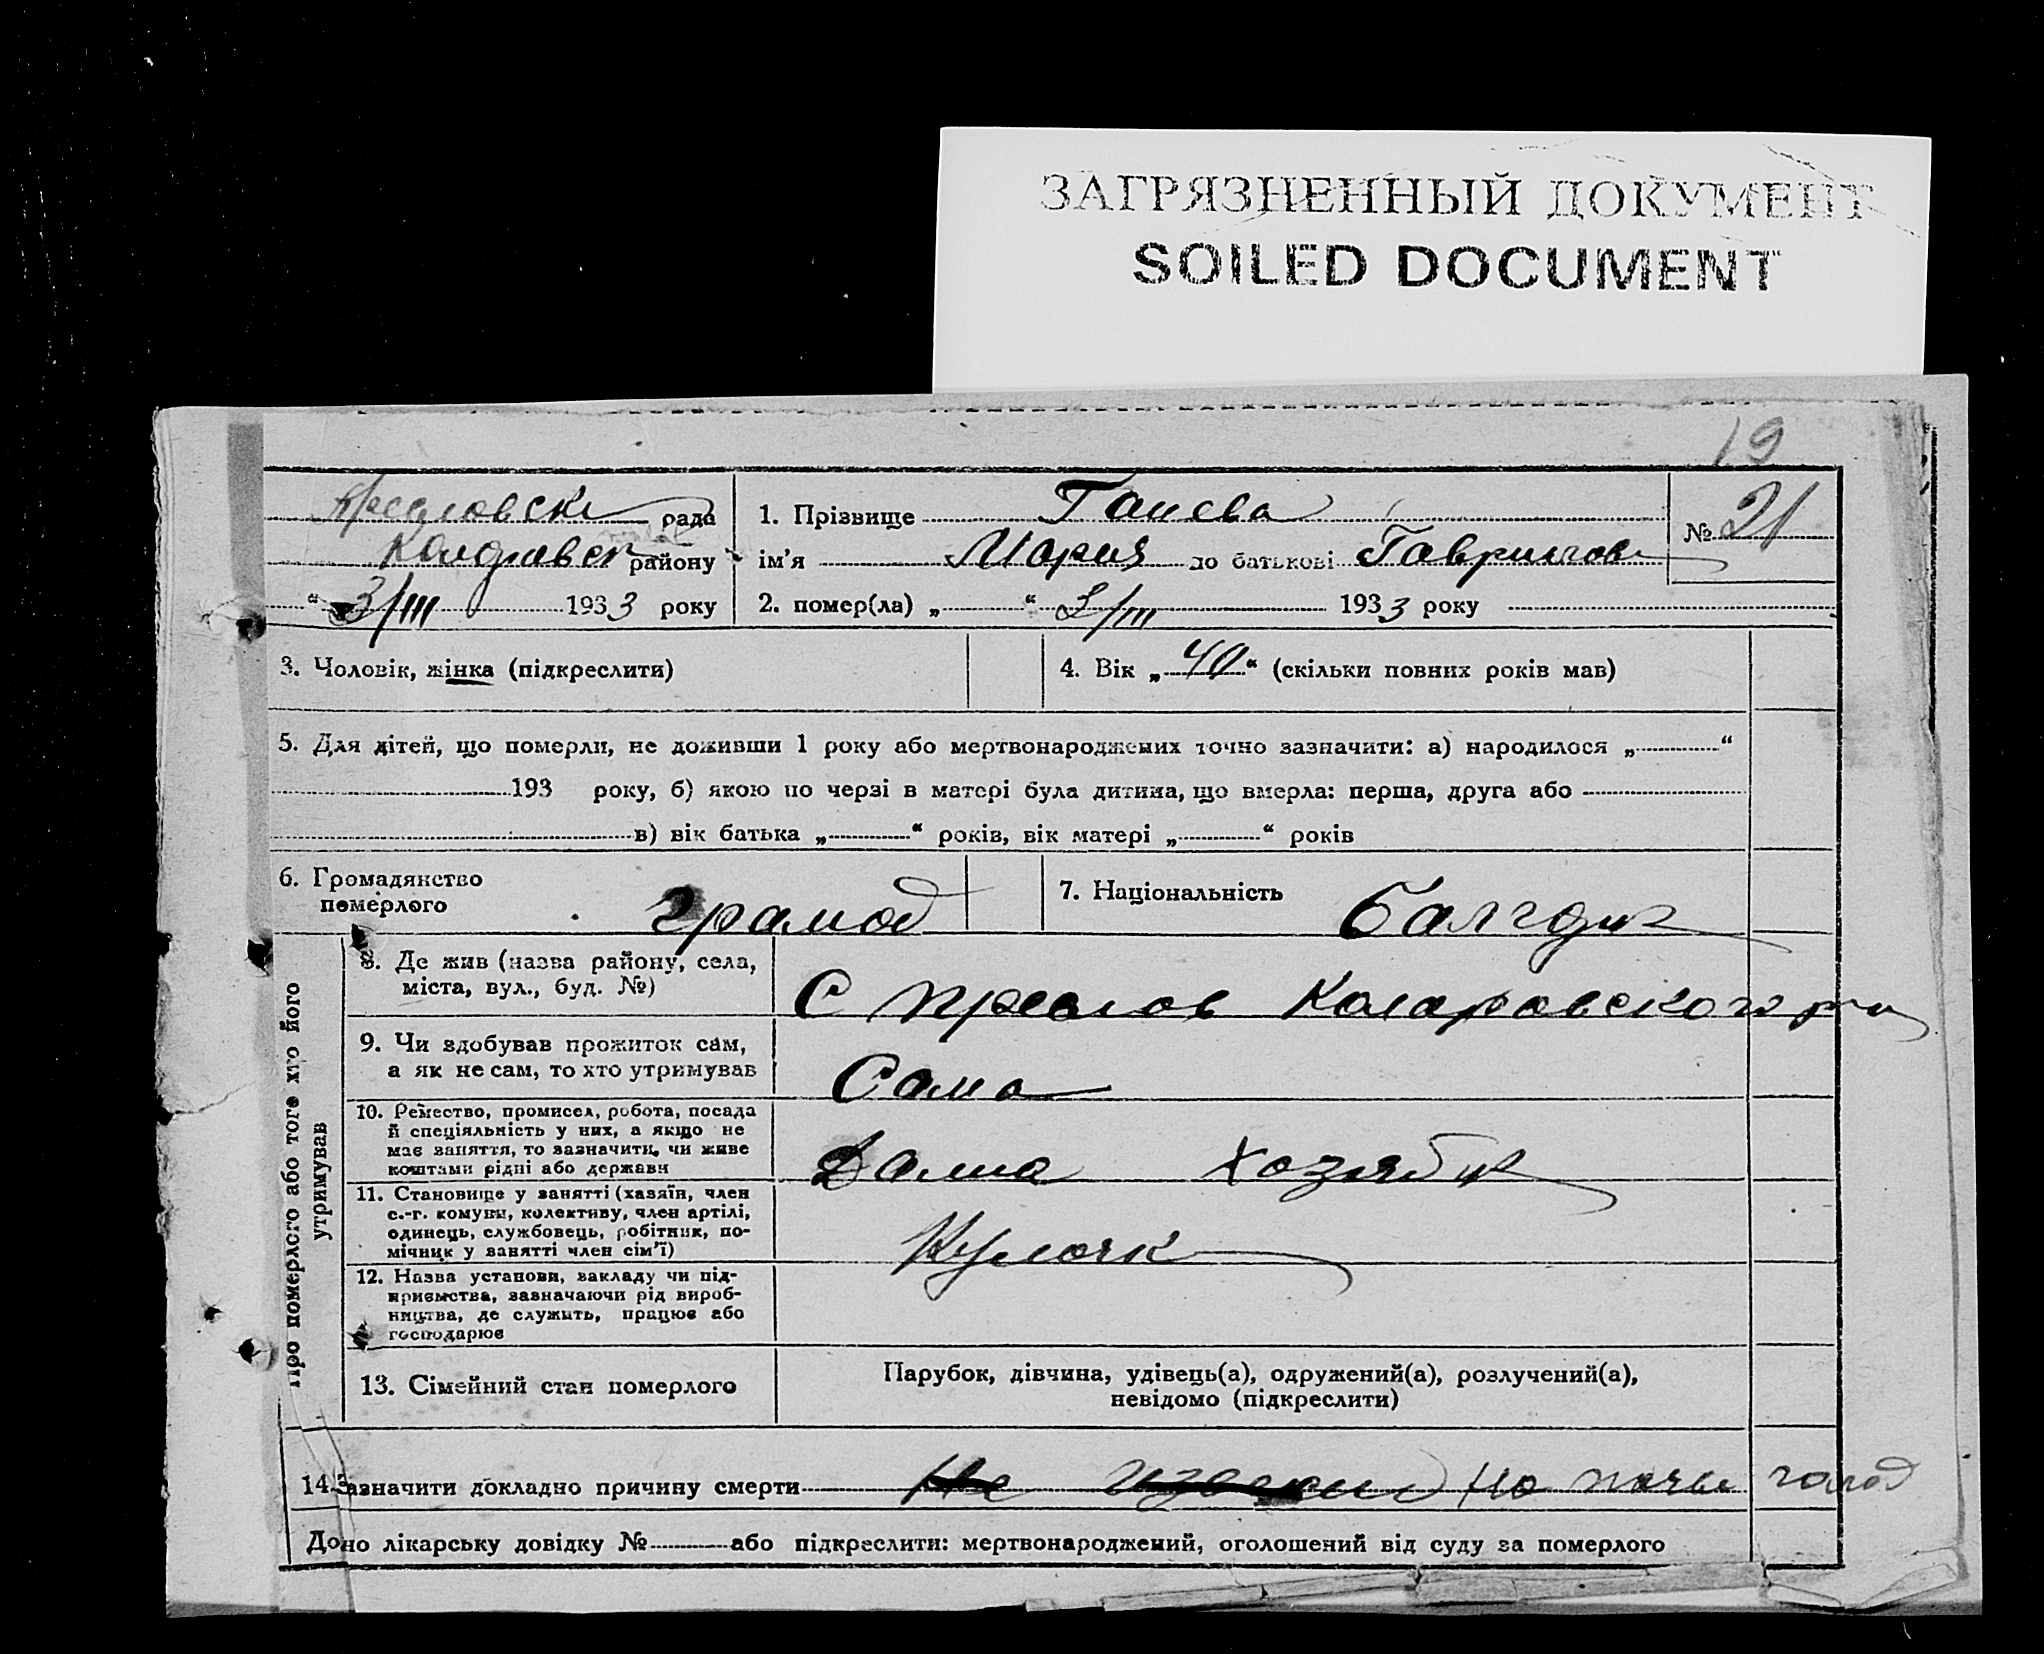 ЗАГРЯЗНЕННЫЙ ДОКУМЕНТ
SOILED DOCUMENT
19
Преславск рада
Коларавск району
" 3/III 1933 року
1. Прізвище Ганева
ім'я Мария по батькові Гаврилов
2. помер(ла) „ “ 2/III 1933 року
№ 21
3. Чоловік, жінка (підкреслити)
4. Вік „ 40 “ (скільки повних років мав)
5. Для дітей, що померли, не доживши 1 року або мертвонароджених точно зазначити: а) народилося „ “
193 року, б) якою по черзі в матері була дитина, що вмерла: перша, друга або
в) вік батька „ “ років, вік матері „ “ років
6. Громадянство
померлого
7. Національність
Про померлого або того хто його
утримував
8. Де жив (назва району, села,
міста, вул., буд. №)
С Преслав Коларовского
9. Чи здобував прожиток сам,
а як не сам, то хто утримував
Сама
10. Ремество, промисел, робота, посада
й спеціяльність у них, а якщо не
має заняття, то зазначити, чи живе
коштами рідні або держави
Дома хозяйк
11. Становище у занятті (хазяїн, член
с.-г. комуни, колективу, член артілі,
одинець, службовець, робітник, по-
мічник у занятті член сім'ї)
12. Назва установи, закладу чи під-
приємства, зазначаючи рід вироб-
ництва, де служить, працює або
господарює
13. Сімейний стан померлого
Парубок, дівчина, удівець(а), одружений(а), розлучений(а),
невідомо (підкреслити)
14. Зазначити докладно причину смерти Не голод
Дано лікарську довідку № або підкреслити: мертвонароджений, оголошений від суду за померлого